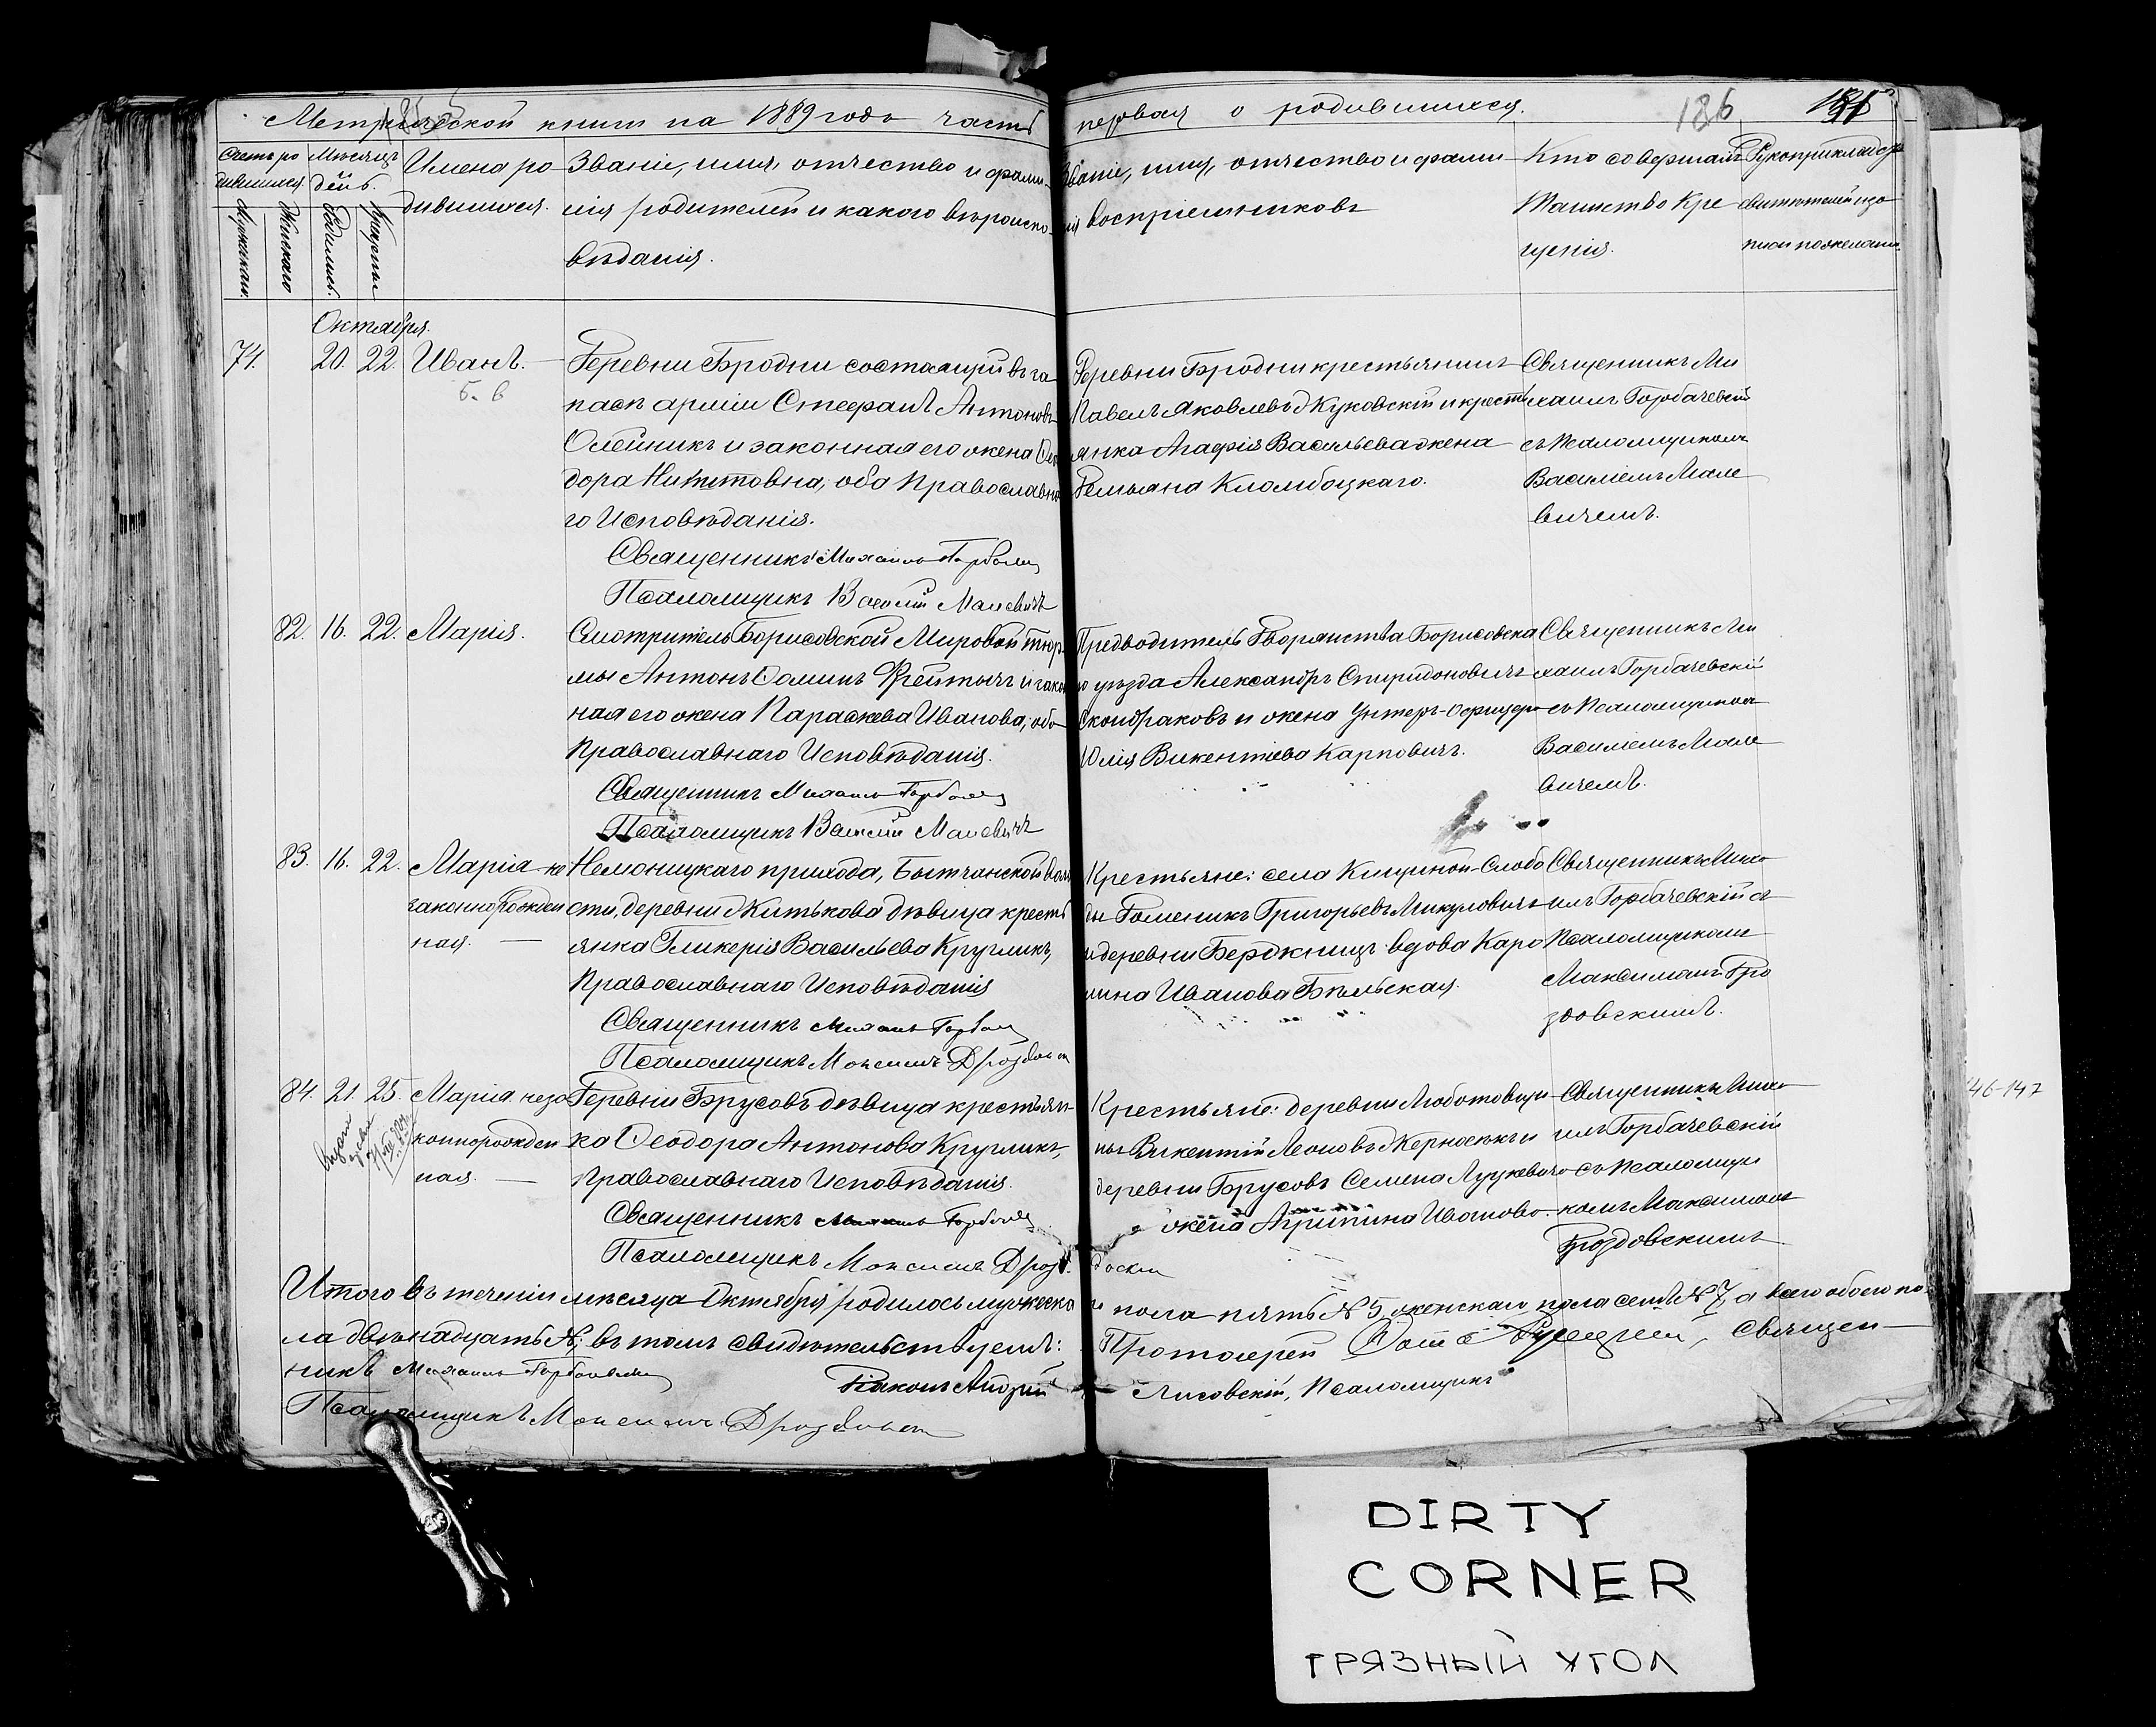 Метрической книги на 1889 годъ часть первая о родившихся.
186
Счетъ ро
дившихся.
Мѣсяцъ
день.
Имена ро
дившихся.
Званіе, имя, отчество и фами
лія родителей и какого вѣроиспо
вѣданія.
Званіе, имя, отчество и фами
лія воспріемниковъ
Кто совершалъ
Таинство Кре
щенія.
Рукоприкладство
свидѣтелей о за
писи по желанію.
Мужескаго.
Женскаго
Родились.
Крещены
Октября.
74. 20. 22. Иванъ.
Деревни Бродни состоящій въ за
пасѣ арміи Стефанъ Антоновъ
Олейникъ и законная его жена Ѳео
дора Никитовна, оба Православна
го Исповѣданія.
Священникъ Михаилъ Горбачевс
Псаломщикъ Василій Малевичъ
Деревни Бродни крестьянинъ
Павелъ Яковлевъ Жуковскій и кресть
янка Агафія Васильева жена
Демьяна Кломбоцкаго.
Священникъ Ми
хаилъ Горбачевскій
съ Псаломщикомъ
Василіемъ Мале
вичемъ.
82. 16. 22. Марія.
Смотритель Борисовской Мировой тюр
мы Антонъ Фейтычъ и закон
ная его жена Параскева Иванова, оба
Православнаго Исповѣданія.
Священникъ Михаилъ Горбачевс
Псаломщикъ Василій Малевичъ
Предводитель Дворянства Борисовска
го уѣзда Александръ Спиридоновичъ
Скондраковъ и жена Унтеръ-Офицера
Юлія Викентіева Карповичъ.
Священникъ Ми
хаилъ Горбачевскій
съ Псаломщикомъ
Василіемъ Мале
вичемъ.
83. 16. 22. Марія не
законнорожден
ная.
Немоницкаго прихода, Бытчанской воло
сти, деревни Житькова дѣвица кресть
янка Гликерія Васильева Кругликъ,
Православнаго Исповѣданія
Священникъ Михаилъ Горбач
Псаломщикъ Максимъ Дроздовск
Крестьяне: села Кищиной-Слобо
ды Доменикъ Григорьевъ Микуловичъ
и деревни Бердкницъ вдова Каро
лина Иванова Бѣльская.
Священникъ Миха
илъ Горбачевскій съ
Псаломщикомъ
Максимомъ Дро
здовскимъ.
84. 21. 25. Марія неза
коннорожден
ная.
Деревни Брусовъ дѣвица крестьян
ка Ѳеодора Антонова Кругликъ,
Православнаго Исповѣданія.
Священникъ Михаилъ Горбачевс
Псаломщикъ Максимъ Дроздовски
Крестьяне: деревни Любатовщи
ны Викентій Леоновъ и
деревни Брусовъ Семена Луцкевича
жена Агрипина Иванова.
Священникъ Миха
илъ Горбачевскій
съ Псаломщи
комъ Максимомъ
Дроздовскимъ
Итого въ теченіи мѣсяца Октября родилось мужеска го пола пять № 5, женскаго пола семь № 7, а всего обоего по
ла двѣнадцать №, въ томъ свидѣтельствуемъ: Протоіерей Священ
никъ Михаилъ Горбачевскій Діаконъ Андрей Лисовскій, Псаломщикъ
Псаломщикъ Максимъ Дроздовски
146-147
DIRTY
CORNER
ГРЯЗНЫЙ УГОЛ